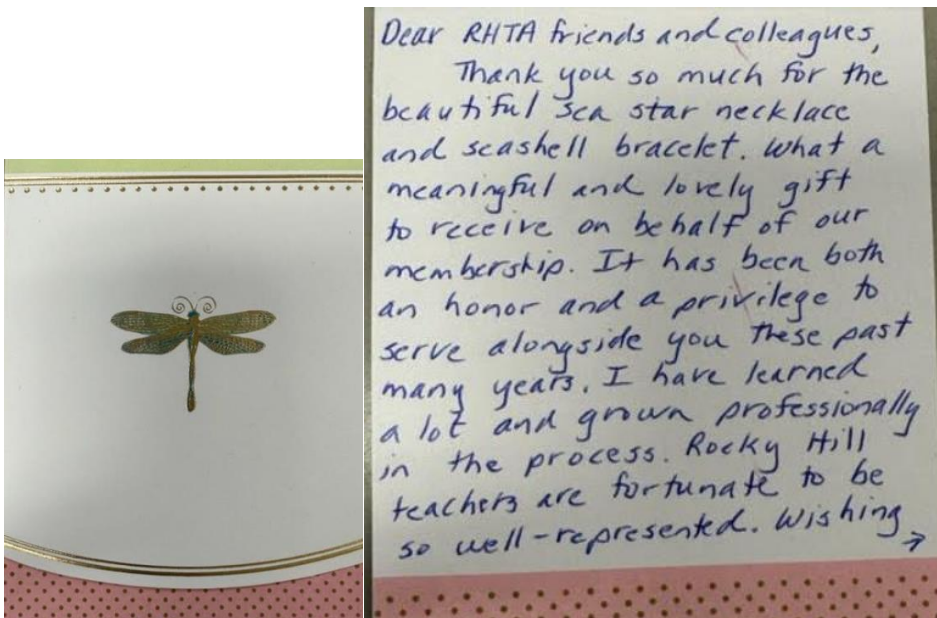 Dear RHTA friends and colleagues,
Thank you so much for the
beautiful sea star necklace
and seashell bracelet. What a
meaningful and lovely gift
to receive on behalf of our
membership. It has been both
an honor and a privilege to
serve alongside you these past
many years. I have learned
a lot and grown professionally
in the process. Rocky Hill
teachers are fortunate to be
so well-represented. Wishing
→